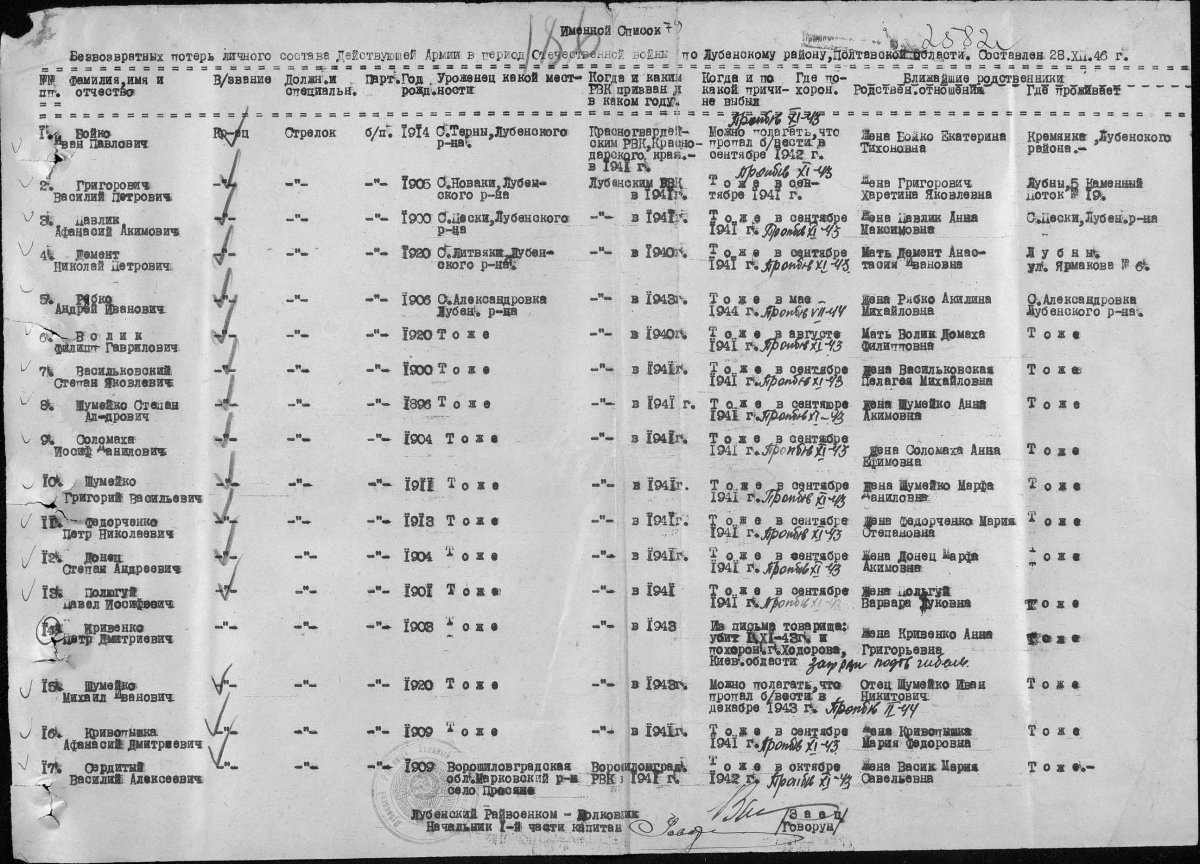 Именной Список 79
186
2582с
Безвозвратных потерь личного состава Действующей Армии в период Отечественной войны по Лубенскому району,Полтавской области. Составлен 28.XII.46 г.
№№ Фамилия,имя и В/звание Должн.и Парт. Год Уроженец какой мест- Когда и каким Когда и по Где по- Ближайшие родственники
пп. отчество специальн. рожд. ности РВК призван и какой причи- хорон. Родствен.отношения Где проживает
в каком году. не выбыл
Проп б/в XI-43
1. Бойко Кр-ец Стрелок б/п. 1914 С.Терны,Лубенского Красногвардей- Можно полагать,что Жена Бойко Екатерина Кремянка,Лубенского
Иван Павлович р-на. ским РВК,Красно- пропал б/вести в Тихоновна района.-
дарского края.- сентябре 1942 г.
в 1941 г. Проп б/в XI-43
2. Григорович -"- -"- -"- 1905 С.Новаки,Лубен- Лубенским РВК Тоже в сен- Жена Григорович Лубны,5 Каменный
Василий Петрович ского р-на в 1941г. тябре 1941 г. Харетина Яковлевна Поток № 19.
3. Павлик -"- -"- -"- 1900 С.Пески,Лубенского -"- в 1941г. Тоже в сентябре Жена Павлик Анна С.Пески,Лубен.р-на
Афанасий Акимович р-на 1941 г. Проп б/в XI-43 Максимовна
4. Демент -"- -"- -"- 1920 С.Литвяки,Лубен- -"- в 1940г. Тоже в сентябре Мать Демент Анас- Лубны
Николай Петрович ского р-на. 1941 г. Проп б/в XI-43 тасия Ивановна ул. Ярмакова № 6.
5. Рябко -"- -"- -"- 1906 С.Александровка -"- в 1943г. Тоже в мае Жена Рябко Акилина С.Александровка
Андрей Иванович Лубен. р-на 1944 г. Проп б/в VII-44 Михайловна Лубенского р-на.
6. Волик -"- -"- -"- 1920 Тоже -"- в 1940г. Тоже в августе Мать Волик Домаха Тоже
Филипп Гаврилович 1941 г. Проп б/в XI-43 Филипповна
7. Васильковский -"- -"- -"- 1900 Тоже -"- в 1941г. Тоже в сентябре Жена Васильковская Тоже
Степан Яковлевич 1941 г. Проп б/в XI-43 Пелагея Михайловна
8. Шумейко Степан -"- -"- -"- 1896 Тоже -"- в 1941 г. Тоже в сентябре Жена Шумейко Анна Тоже
Ал-дрович 1941 г. Проп б/в XI-43 Акимовна
9. Соломаха -"- -"- -"- 1904 Тоже -"- в 1941г. Тоже в сентябре Тоже
Иосиф Данилович 1941 г. Проп б/в XI-43 Жена Соломаха Анна
Ефимовна
10. Шумейко -"- -"- -"- 1911 Тоже -"- в 1941г. Тоже в сентябре Жена Шумейко Марфа Тоже
Григорий Васильевич 1941 г. Проп б/в XI-43 Даниловна
11. Федорченко -"- -"- -"- 1913 Тоже -"- в 1941г. Тоже в сентябре Жена Федорченко Мария Тоже
Петр Николаевич 1941 г. Проп б/в XI-43 Степановна
12. Донец -"- -"- -"- 1904 Тоже -"- в 1941г. Тоже в сентябре Жена Донец Марфа Тоже
Степан Андреевич 1941 г. Проп б/в XI-43 Акимовна
13. Полюгуй -"- -"- -"- 1901 Тоже -"- в 1941 Тоже в сентябре Жена Польгуй
Павел Иосифович 1941 г. Проп б/в XI-43 Варвара Луковна Тоже
14. Кривенко -"- -"- -"- 1903 Тоже -"- в 1943 Из письма товарища:
Петр Дмитриевич убит 1.XI-43г. и Жена Кривенко Анна Тоже
похорон.г.Ходорова, Григорьевна
Киев.области
15. Шумейко -"- -"- -"- 1920 Тоже -"- в 1943г. Можно полагать,что Отец Шумейко Иван Тоже
Михаил Иванович пропал б/вести в Никитович
декабре 1943 г. Проп б/в II-44
16. Криволышка -"- -"- -"- 1909 Тоже -"- в 1941г. Тоже в сентябре Жена Криволышка Тоже
Афанасий Дмитриевич 1941 г. Проп б/в XI-43 Мария Федоровна
17. Сердитый -"- -"- -"- 1909 Ворошиловградская Воросиловград. Тоже в октябре Жена Васик Мария Тоже.-
Василий Алексеевич обл.Марковский р-н РВК в 1941 г. 1942 г. Проп б/в XI-43 Савельевна
село Просяне
Лубенский Райвоенком - Полковник /Заец/
Начальник 1-й части капитан /Говорун/